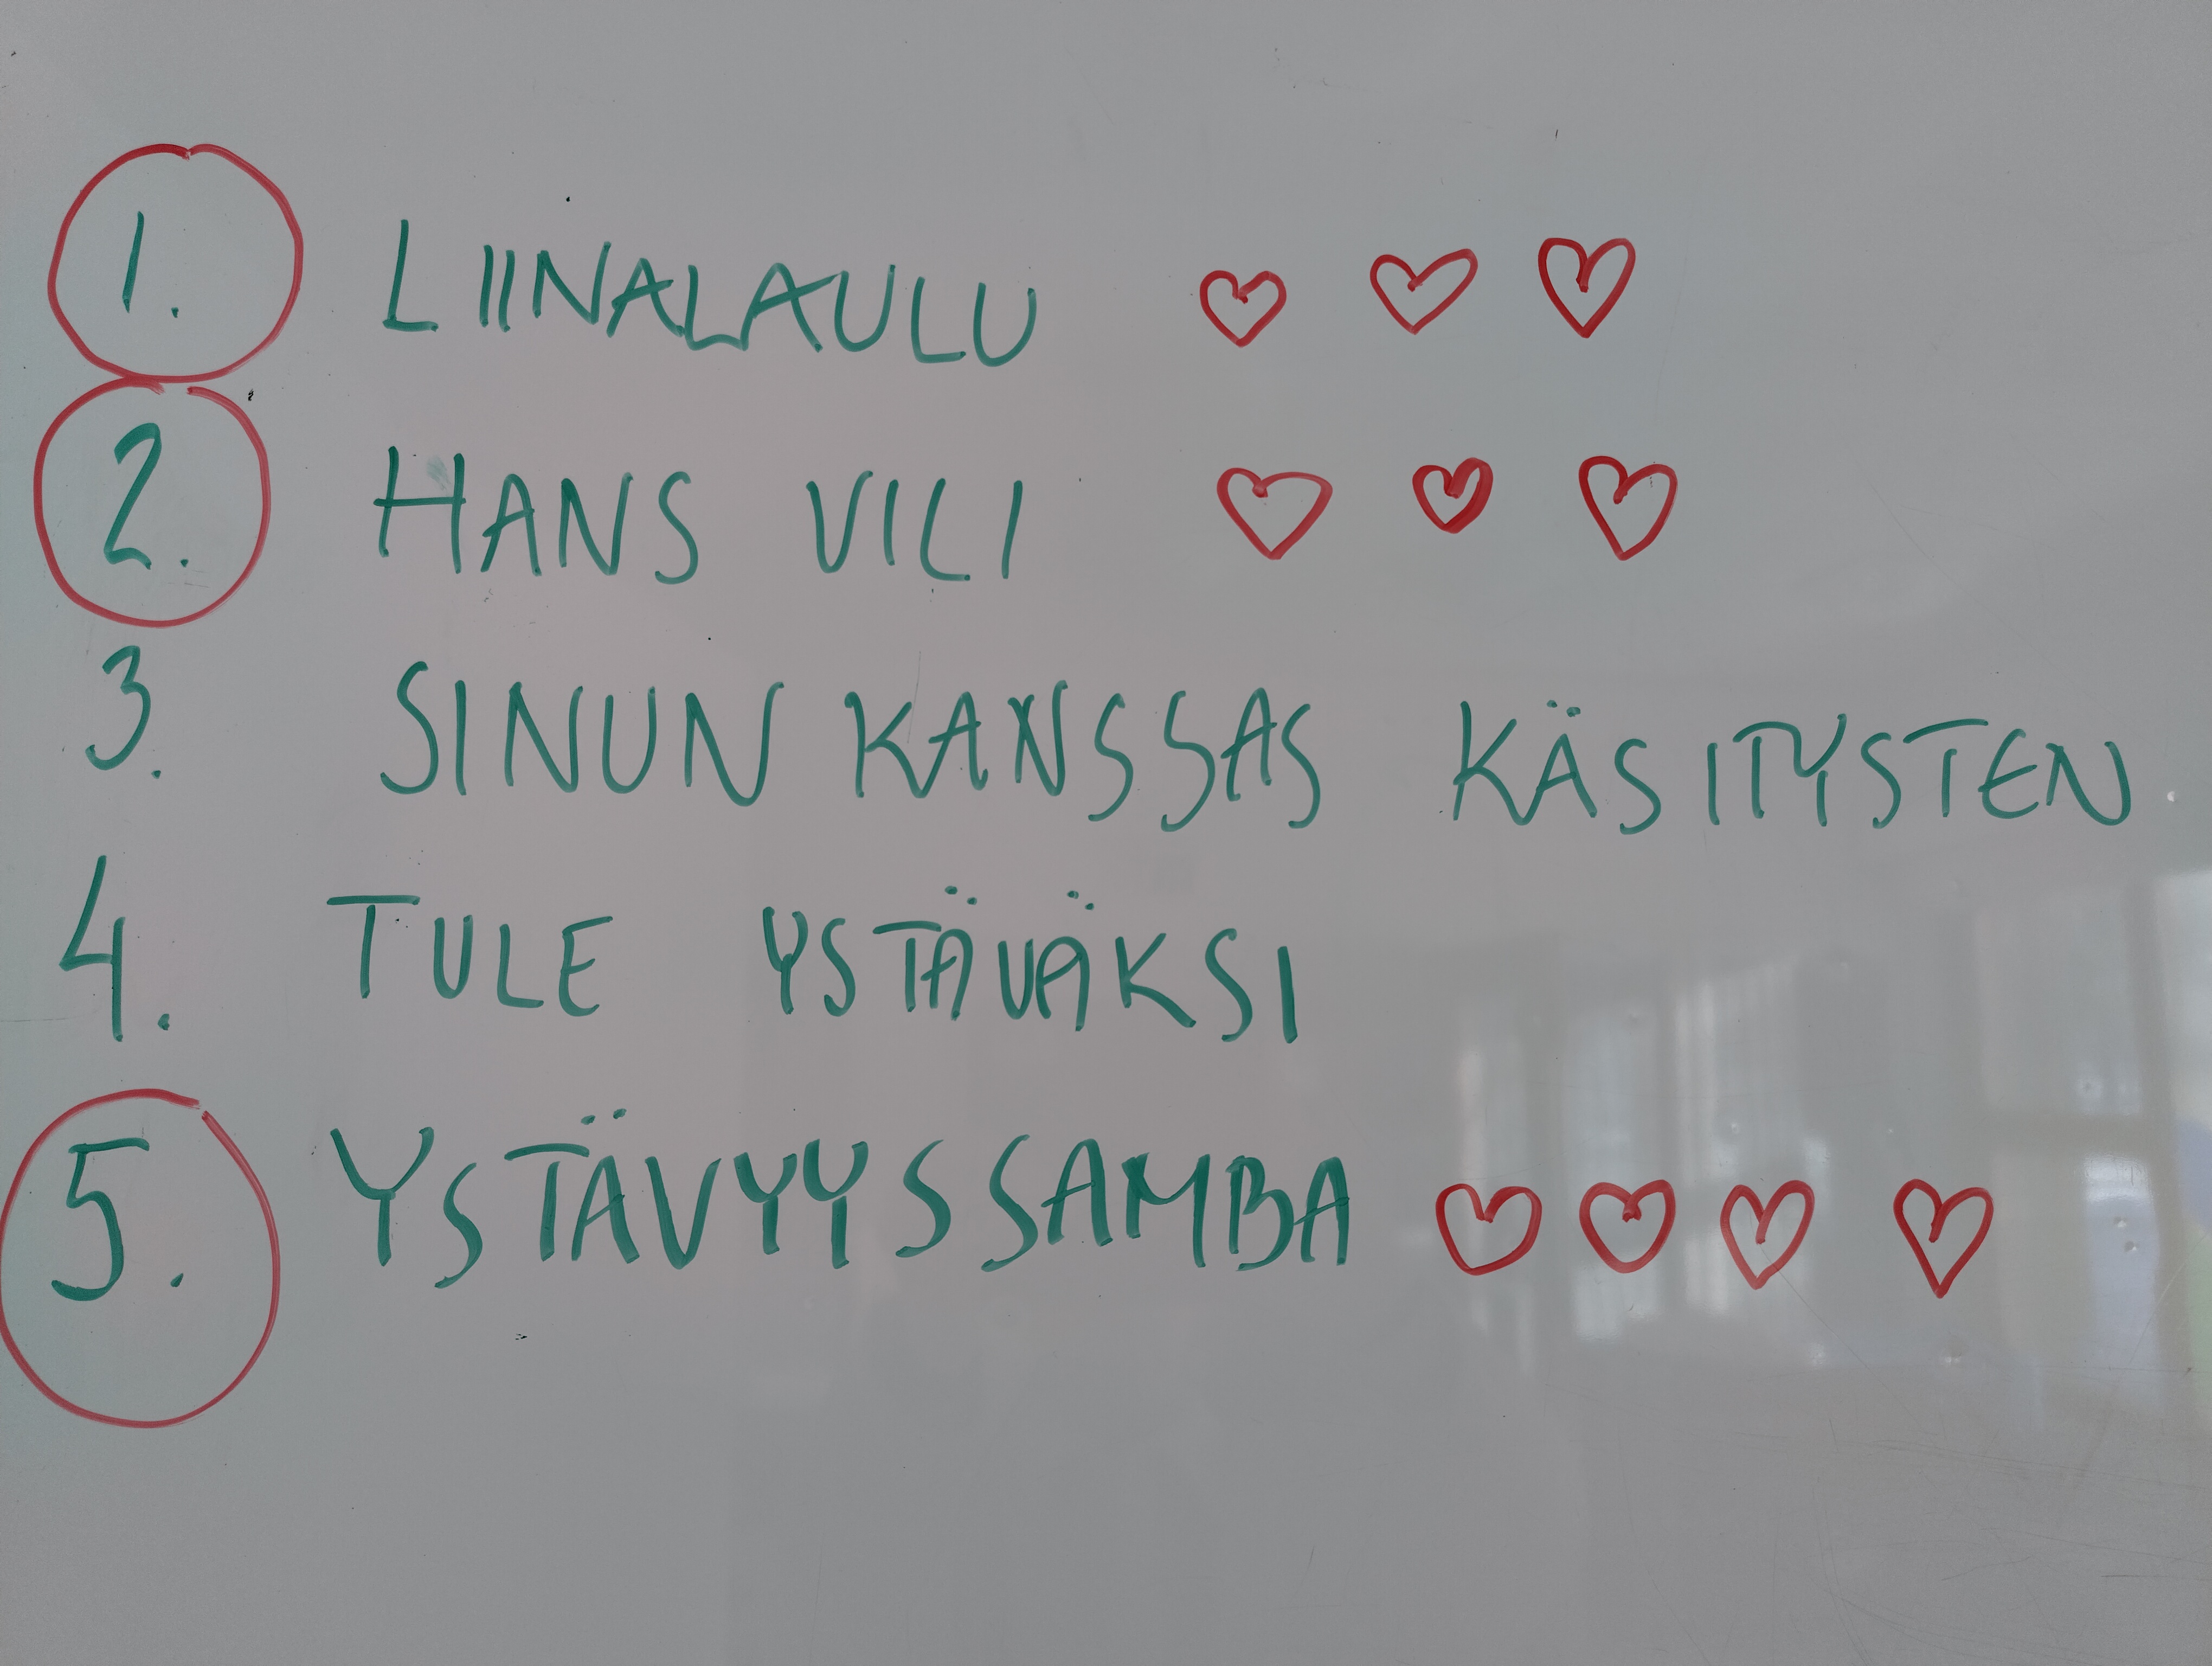 1. LIINALAULU
2. HANS VILI
3. SINUN KANSSAS KÄSITYSTEN
4. TULE YSTÄVÄKSI
5. YSTÄVYYSSAMBA